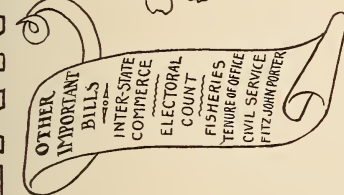 OTHER
IMPORTANT
BILLS
INTER-STATE
COMMERCE
ELECTORAL
COUNT
FISHERIES
TENURE OF OFFICE
CIVIL SERVICE
FITZ JOHN PORTER